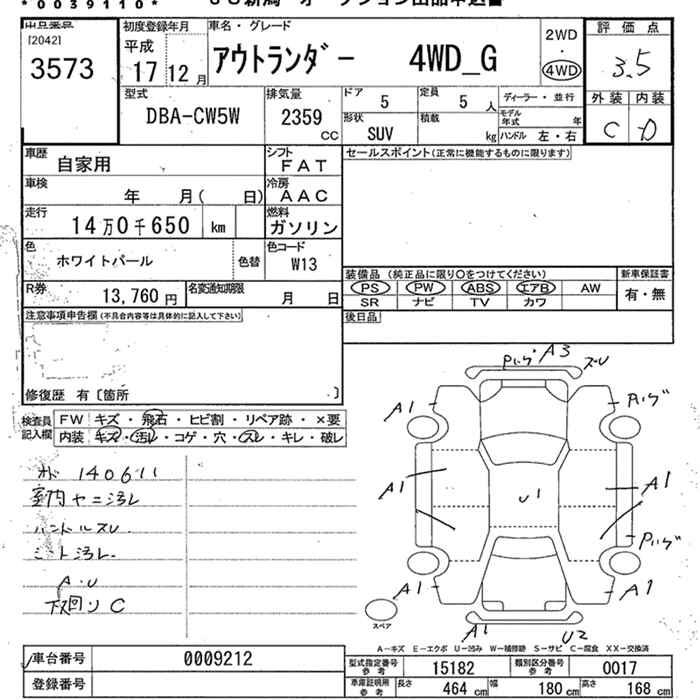 *0039110*
出品番号
[2042]
3573
初度登録年月
平成
17 12 月
車名・グレード
アウトランダー 4WD_G
2WD
・
4WD
評価点
3.5
外装 内装
C D
型式
DBA-CW5W
排気量
2359
CC
ドア
5
定員
5 人
ディーラー・並行
モデル年式 年
形状
SUV
積載
kg
ハンドル 左・右
車歴
自家用
シフト
FAT
セールスポイント(正常に機能するものに限ります)
車検
年 月( 日)
冷房
AAC
走行
14万0千650 km
燃料
ガソリン
色
ホワイトパール
色替
色コード
W13
装備品 (純正品に限り○をつけてください)
PS PW ABS エアB AW
SR ナビ TV カワ
新車保証書
有・無
R券
13,760 円
名変通知期限
月 日
後日品
注意事項申告欄(不具合内容等は具体的に記入して下さい)
修復歴 有〔箇所 〕
検査員
記入欄
FW キズ・飛石・ヒビ割・リペア跡・×要
内装 キズ・汚レ・コゲ・穴・スレ・キレ・破レ
140611
室内ヤニ汚レ
ハンドルスレ
シート汚レ
A・U
下回りC
A3
A1
A1
A1
A1
A1
A1
U1
U2
スペア
A-キズ E-エクボ U-凹み W-補修跡 S-サビ C-腐食 XX-交換済
車台番号
0009212
登録番号
型式指定番号
参考
15182
類別区分番号
参考
0017
車庫証明用
参考
長さ 464 cm
幅 180 cm
高さ 168 cm